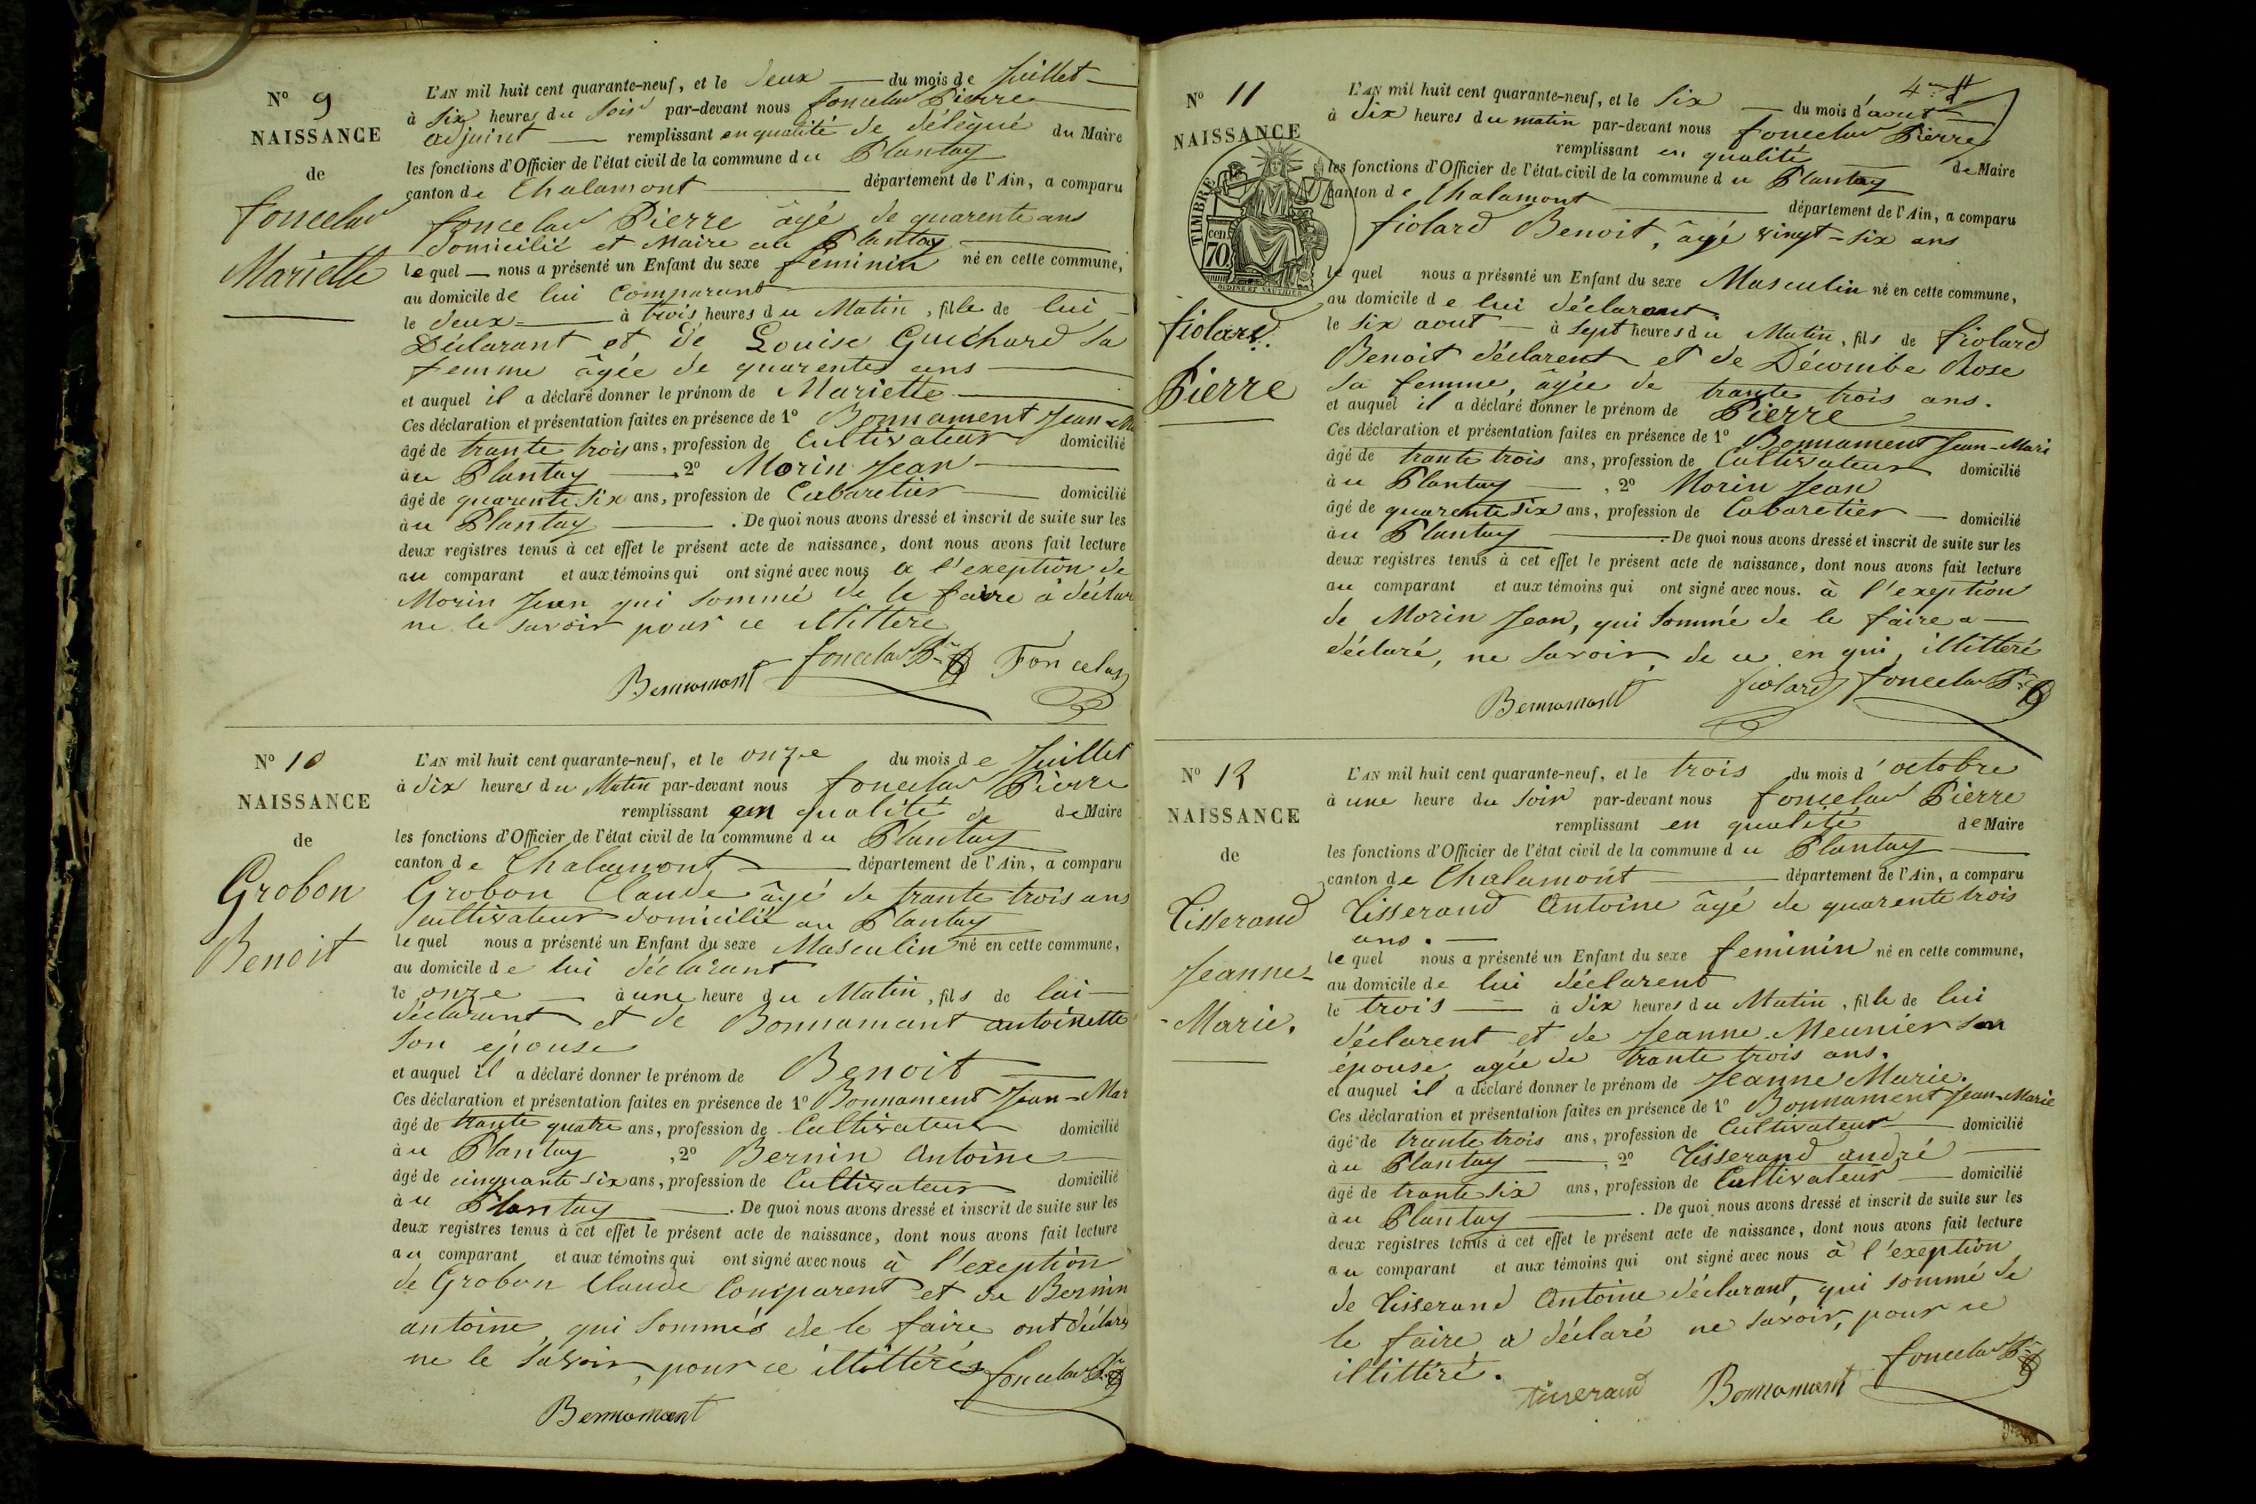 N° 9
NAISSANCE
de
foncelas
Mariette
L'AN mil huit cent quarante-neuf, et le deux du mois de Juillet
à six heures du soir par-devant nous foncelas Pierre
adjoint remplissant en qualité de délégué du Maire
les fonctions d'Officier de l'état civil de la commune du Plantay
canton de Chalamont département de l'Ain, a comparu
foncelas Pierre âgé de quarente ans
domicilié et Maire au Plantay
lequel nous a présenté un Enfant du sexe féminin né en cette commune,
au domicile de lui Comparant
le deux à trois heures du Matin, fille de lui
Déclarant et de Louise Guichard sa
femme âgée de quarentes ans
et auquel il a déclaré donner le prénom de Mariette
Ces déclaration et présentation faites en présence de 1° Bonnament Jean-M
âgé de trante trois ans, profession de Cultivateur domicilié
au Plantay 2° Morin Jean
âgé de quarente six ans, profession de Cabaretier domicilié
au Plantay. De quoi nous avons dressé et inscrit de suite sur les
deux registres tenus à cet effet le présent acte de naissance, dont nous avons fait lecture
au comparant et aux témoins qui ont signé avec nous a l'exeption de
Morin Jean qui sommé de le faire a déclar
ne le savoir pour ce illittere
Bennamont foncelas Pre Foncelas
N° 10
NAISSANCE
de
Grobon
Benoit
L'AN mil huit cent quarante-neuf, et le onze du mois de Juillet
à dix heures du Matin par-devant nous foncelas Pierre
remplissant en qualité de de Maire
les fonctions d'Officier de l'état civil de la commune du Plantay
canton de Chalamont département de l'Ain, a comparu
Grobon Claude âgé de trante trois ans
cultivateur domicilié au Plantay
lequel nous a présenté un Enfant du sexe Masculin né en cette commune,
au domicile de lui déclarant
le onze à une heure du Matin, fils de lui
déclarant et de Bonnamant antoinette
son épouse
et auquel il a déclaré donner le prénom de Benoit
Ces déclaration et présentation faites en présence de 1° Bonnament Jean-Mar
âgé de trante quatre ans, profession de Cultivateur domicilié
au Plantay, 2° Bernin Antoine
âgé de cinquante six ans, profession de Cultivateur domicilié
au Plantay. De quoi nous avons dressé et inscrit de suite sur les
deux registres tenus à cet effet le présent acte de naissance, dont nous avons fait lecture
au comparant et aux témoins qui ont signé avec nous à l'exeption
de Grobon Claude Comparent et de Bernin
antoine, qui sommés de le faire ont déclarés
ne le savoir, pour ce illittérés foncelas Pre
Bennamont
4me ft
N° 11
NAISSANCE
TIMBRE
cen. 70
OUDINE ET VAUTHIER
fiolard
Pierre
L'AN mil huit cent quarante-neuf, et le six du mois d'aout
à dix heures du matin par-devant nous foncelas Pierre
remplissant en qualité de Maire
les fonctions d'Officier de l'état civil de la commune du Plantay
canton de Chalamont département de l'Ain, a comparu
fiolard Benoit, âgé vingt-six ans
lequel nous a présenté un Enfant du sexe Masculin né en cette commune,
au domicile de lui déclarant
le six aout à sept heures du Matin, fils de fiolard
Benoit déclarent et de Décombe Rose
sa femme, âgée de trante trois ans.
et auquel il a déclaré donner le prénom de Pierre
Ces déclaration et présentation faites en présence de 1° Bonnament Jean-Mari
âgé de trante trois ans, profession de Cultivateur domicilié
au Plantay, 2° Morin Jean
âgé de quarente six ans, profession de Cabaretier domicilié
au Plantay. De quoi nous avons dressé et inscrit de suite sur les
deux registres tenus à cet effet le présent acte de naissance, dont nous avons fait lecture
au comparant et aux témoins qui ont signé avec nous. à l'exeption
de Morin Jean, qui sommé de le faire a
déclaré, ne savoir, de ce en qui, illittéré
Bennamont fiolard foncelas Pre
N° 12
NAISSANCE
de
Tisserand
Jeanne-
-Marie.
L'AN mil huit cent quarante-neuf, et le trois du mois d'octobre
à une heure du soir par-devant nous foncelas Pierre
remplissant en qualité de Maire
les fonctions d'Officier de l'état civil de la commune du Plantay
canton de Chalamont département de l'Ain, a comparu
Tisserand Antoine âgé de quarente trois
ans.
lequel nous a présenté un Enfant du sexe feminin né en cette commune,
au domicile de lui déclarent
le trois à dix heures du Matin, fille de lui
déclarent et de Jeanne Meunier son
épouse agée de trante trois ans.
et auquel il a déclaré donner le prénom de Jeanne Marie.
Ces déclaration et présentation faites en présence de 1° Bonnament Jean-Marie
âgé de trante trois ans, profession de Cultivateur domicilié
au Plantay, 2° Tisserand andré
âgé de trante six ans, profession de Cultivateur domicilié
au Plantay. De quoi nous avons dressé et inscrit de suite sur les
deux registres tenus à cet effet le présent acte de naissance, dont nous avons fait lecture
au comparant et aux témoins qui ont signé avec nous à l'exeption
de Tisserand Antoine déclarant, qui sommé de
le faire a déclaré ne savoir, pour ce
illittéré.
Tisserand Bonnamant foncelas Pre